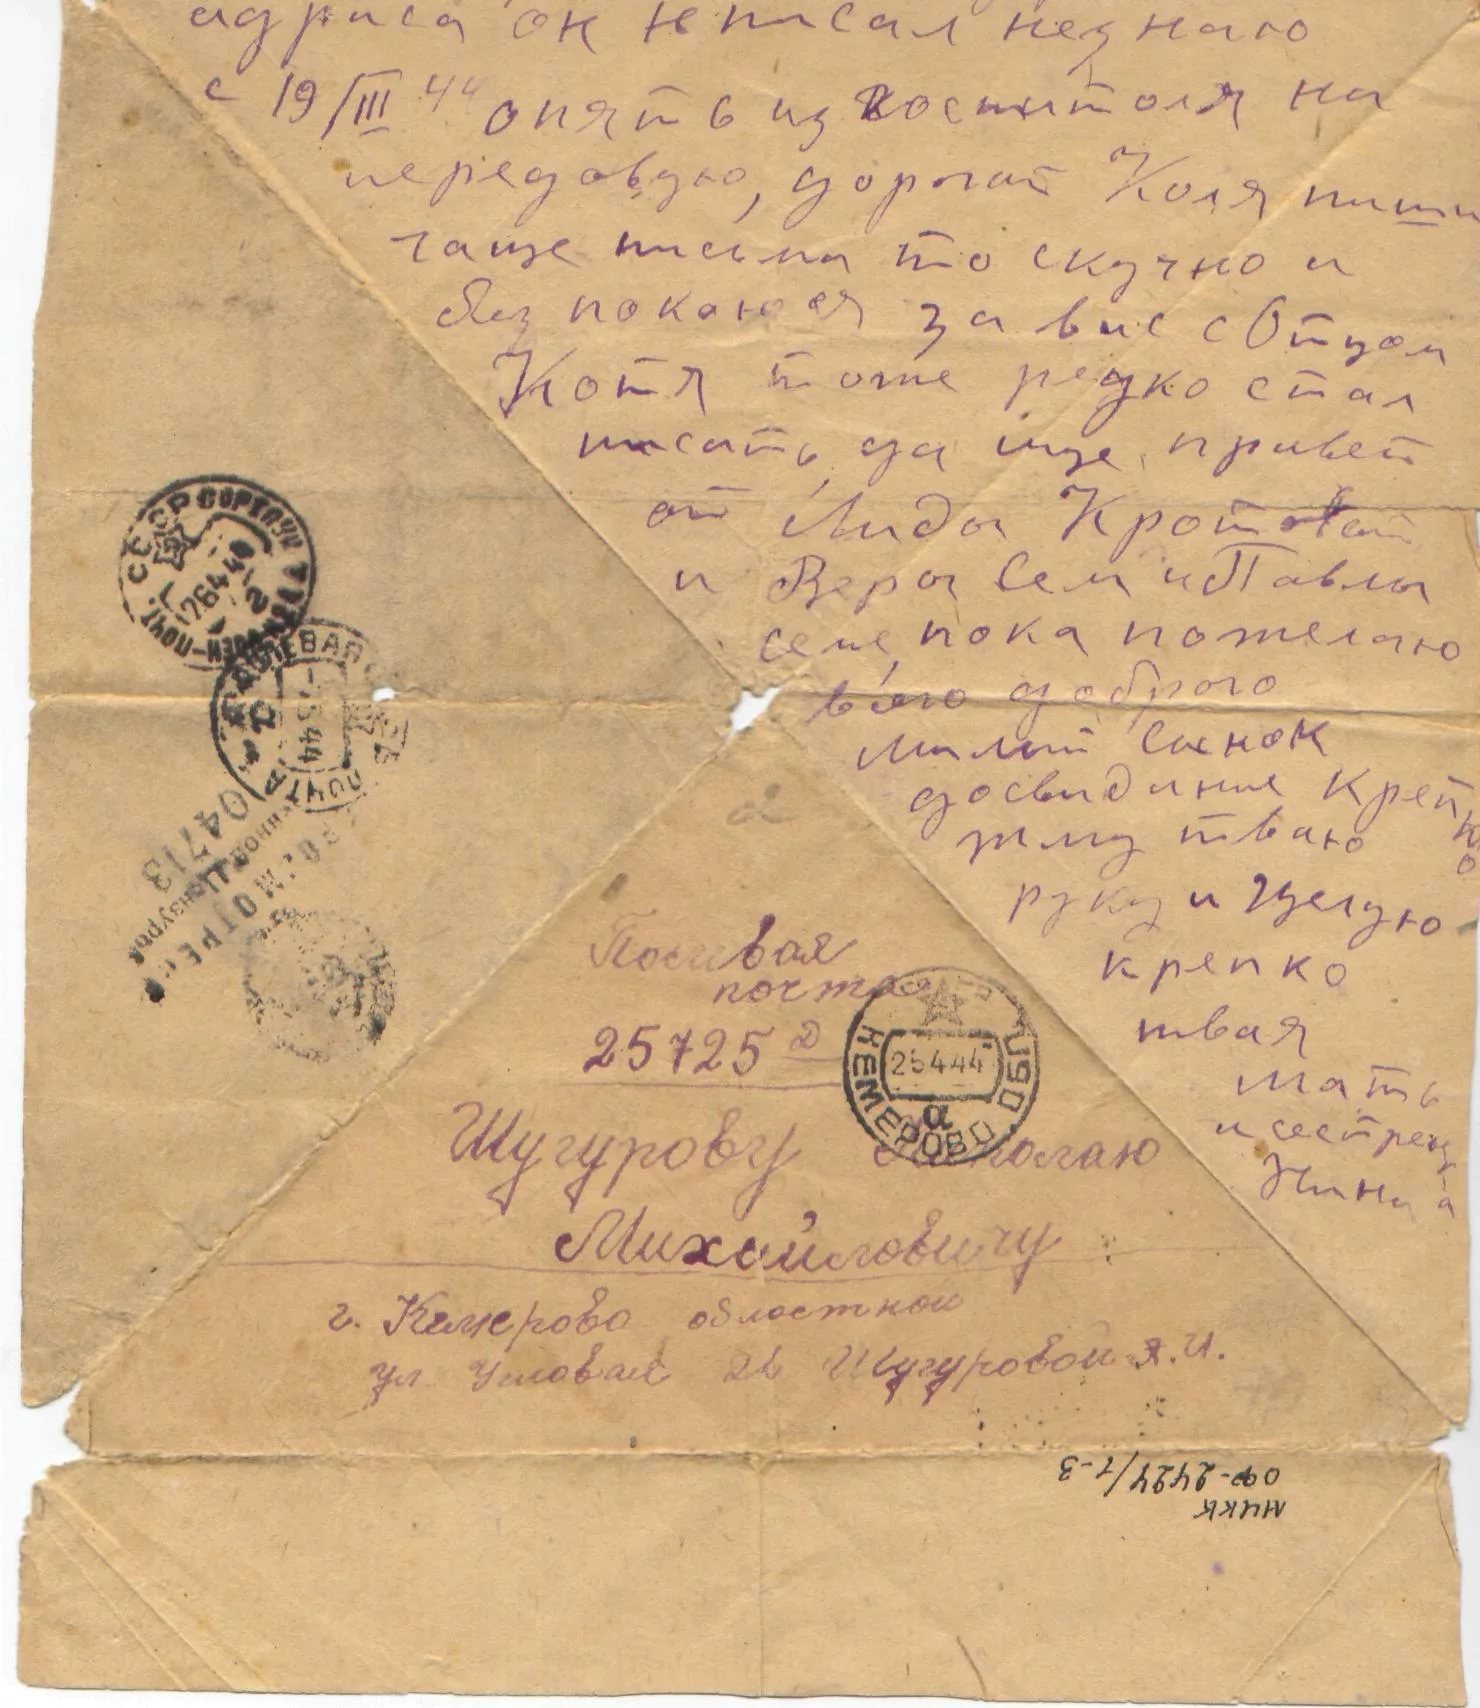 адриса он неписал незнаю
с 19/III 44 опять из госпиталя на
передовую, дорогай Коля пиши
чаще письма то скучно и
безпокаюся за вас с Отцом
Котя тоже редко стал
писать, да ище, привет
от Лиды Кротовай
и Веры Сем и Павлы
семе, пока пожелаю
всего доброго
милай сынок
досвидание крепко
жму тваю
руку и целую
крепко
твая
мать
и сестренка
Нина
СССР
26 4 44
ПОЛЕВАЯ ПОЧТА
5 44
ПРОСМОТРЕНО
Военной Цензурой
04713
Полевая
почта
25725 Д
КЕМЕРОВО ОБЛ
25 4 44
а
Щугурову Николаю
Михайловичу
г. Кемерово областной
ул. Узловая 26 Щугуровой Я. И.
МИКК
ОФ-2424/1-3